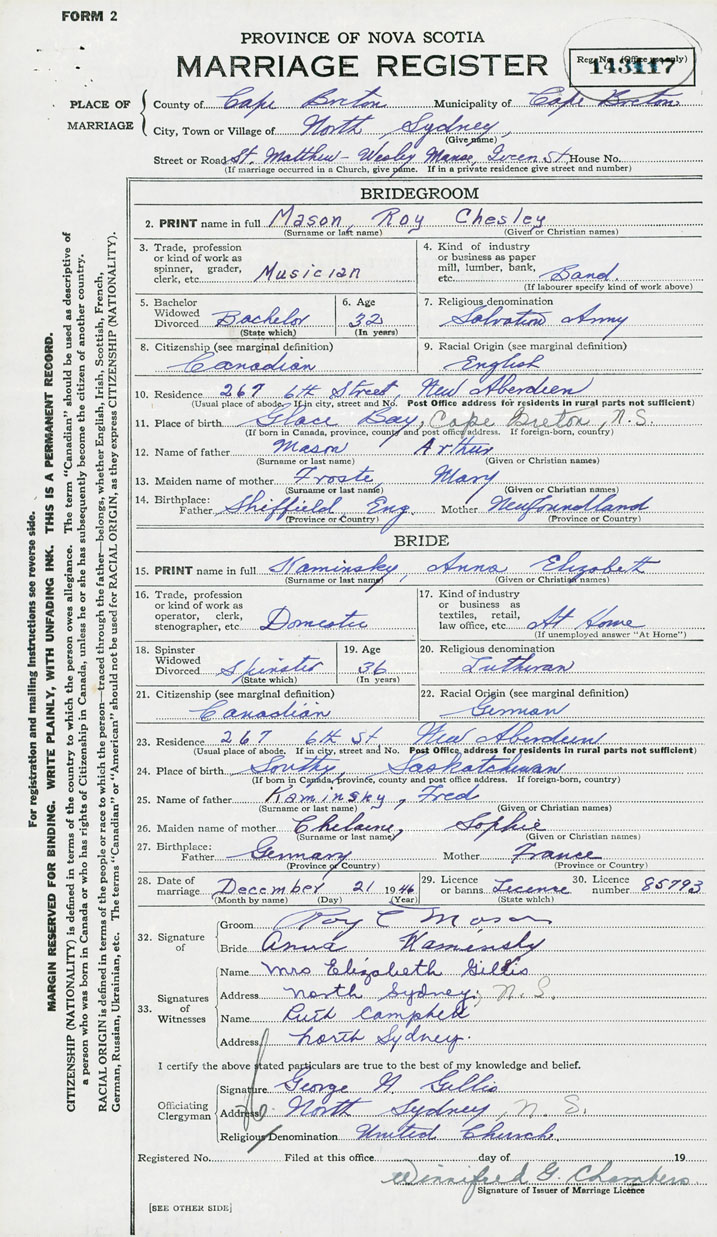 FORM 2
PROVINCE OF NOVA SCOTIA
MARRIAGE REGISTER
Reg. No. (Office use only)
143117
PLACE OF MARRIAGE
County of Cape Breton Municipality of Cape Breton
City, Town or Village of North Sydney,
(Give name)
Street or Road St. Matthew - Wesley Manse, Queen St, House No.
(If marriage occurred in a Church, give name. If in a private residence give street and number)
BRIDEGROOM
2. PRINT name in full Mason, Roy Chesley
(Surname or last name) (Given or Christian names)
3. Trade, profession or kind of work as spinner, grader, clerk, etc. Musician
4. Kind of industry or business as paper mill, lumber, bank, etc. Band.
(If labourer specify kind of work above)
5. Bachelor Widowed Divorced Bachelor
(State which)
6. Age 32
(In years)
7. Religious denomination
Salvation Army
8. Citizenship (see marginal definition)
Canadian
9. Racial Origin (see marginal definition)
English
10. Residence 267 6th Street, New Aberdeen
(Usual place of abode. If in city, street and No. Post Office address for residents in rural parts not sufficient)
11. Place of birth Glace Bay, Cape Breton, N.S.
(If born in Canada, province, county and post office address. If foreign-born, country)
12. Name of father Mason Arthur
(Surname or last name) (Given or Christian names)
13. Maiden name of mother Froste, Mary
(Surname or last name) (Given or Christian names)
14. Birthplace: Father Sheffield, Eng. Mother Newfoundland
(Province or Country) (Province or Country)
BRIDE
15. PRINT name in full Kaminsky, Anna Elizabeth
(Surname or last name) (Given or Christian names)
16. Trade, profession or kind of work as operator, clerk, stenographer, etc. Domestic
17. Kind of industry or business as textiles, retail, law office, etc. At Home
(If unemployed answer "At Home")
18. Spinster Widowed Divorced Spinster
(State which)
19. Age 36
(In years)
20. Religious denomination
Lutheran
21. Citizenship (see marginal definition)
Canadian
22. Racial Origin (see marginal definition)
German
23. Residence 267 6th St. New Aberdeen
(Usual place of abode. If in city, street and No. Post Office address for residents in rural parts not sufficient)
24. Place of birth Southy, Saskatchewan
(If born in Canada, province, county and post office address. If foreign-born, country)
25. Name of father Kaminsky, Fred
(Surname or last name) (Given or Christian names)
26. Maiden name of mother Sophie
(Surname or last name) (Given or Christian names)
27. Birthplace: Father Germany Mother France
(Province or Country) (Province or Country)
28. Date of marriage December 21 1946
(Month by name) (Day) (Year)
29. Licence or banns License
(State which)
30. Licence number 85793
32. Signature of
Groom Roy C Mason
Bride Anna Kaminsky
33. Signatures of Witnesses
Name Mrs Elizabeth Gillis
Address North Sydney, N.S.
Name Ruth Campbell
Address North Sydney.
I certify the above stated particulars are true to the best of my knowledge and belief.
Officiating Clergyman
Signature George N Gillis
Address North Sydney, N.S.
Religious Denomination United Church.
Registered No. Filed at this office day of 19
Winnifred G. Chambers
Signature of Issuer of Marriage Licence
[SEE OTHER SIDE]
For registration and mailing instructions see reverse side.
MARGIN RESERVED FOR BINDING. WRITE PLAINLY, WITH UNFADING INK. THIS IS A PERMANENT RECORD.
CITIZENSHIP (NATIONALITY) is defined in terms of the country to which the person owes allegiance. The term "Canadian" should be used as descriptive of
a person who was born in Canada or who has rights of Citizenship in Canada, unless he or she has subsequently become the citizen of another country.
RACIAL ORIGIN is defined in terms of the people or race to which the person—traced through the father—belongs, whether English, Irish, Scottish, French,
German, Russian, Ukrainian, etc. The terms "Canadian" or "American" should not be used for RACIAL ORIGIN, as they express CITIZENSHIP (NATIONALITY).